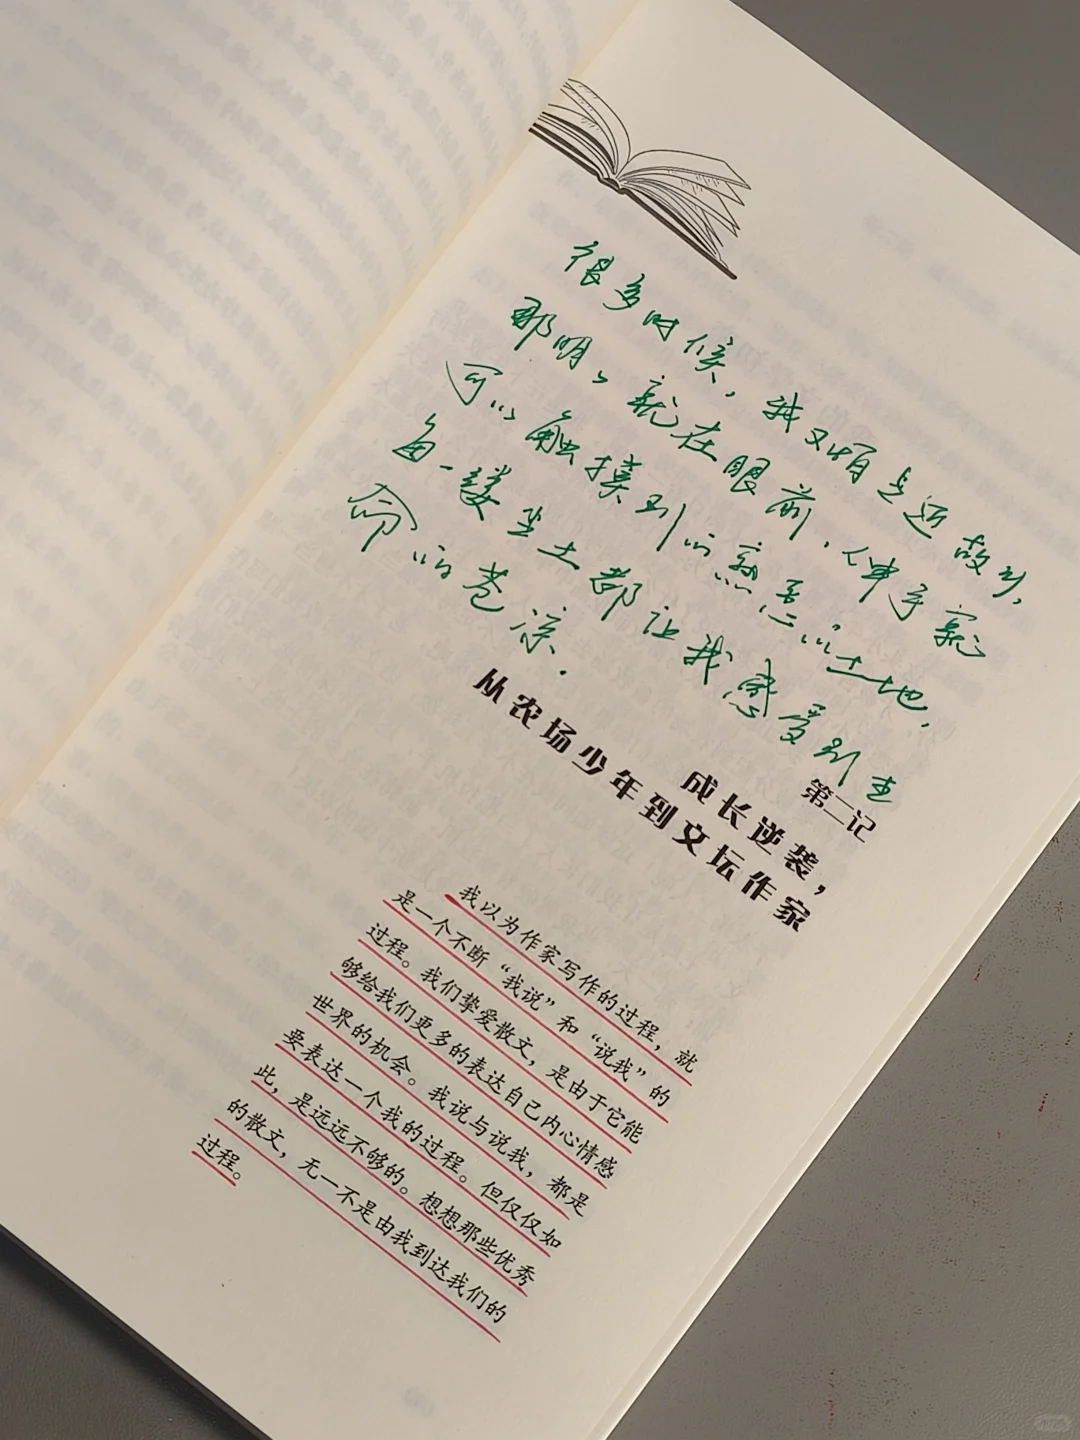 很多时候，我又怕走近故乡，
那明明就在眼前，伸手就
可以触摸到的熟悉的土地，
每一缕尘土都让我感受到生
命的苍凉.
第二记
成长逆袭，
从农场少年到文坛作家
我以为作家写作的过程，就
是一个不断“我说”和“说我”的
过程。我们挚爱散文，是由于它能
够给我们更多的表达自己内心情感
世界的机会。我说与说我，都是
要表达一个我的过程。但仅仅如
此，是远远不够的。想想那些优秀
的散文，无一不是由我到达我们的
过程。